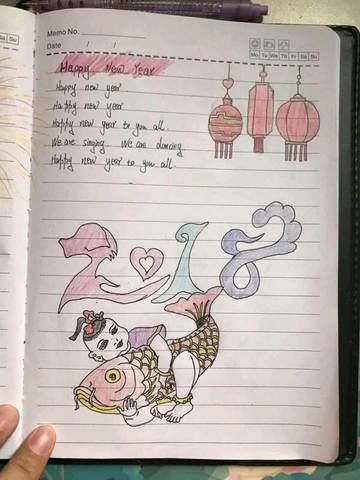 Memo No.
Date / /
Mo Tu We Th Fr Sa Su
Happy New Year
Happy new year
Happy new year
Happy new year to you all.
We are singing. We are dancing.
Happy new year to you all.
2018
Sa Su